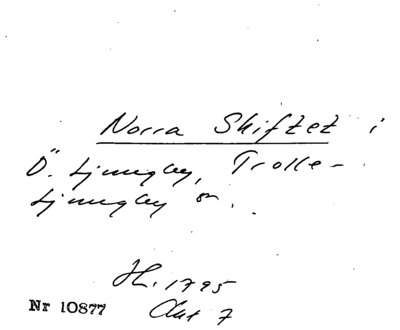 Norra Skiftet i
Ö. Ljungby, Trolle-
Ljungby sn.
H. 1795
Nr 10877
Akt 7